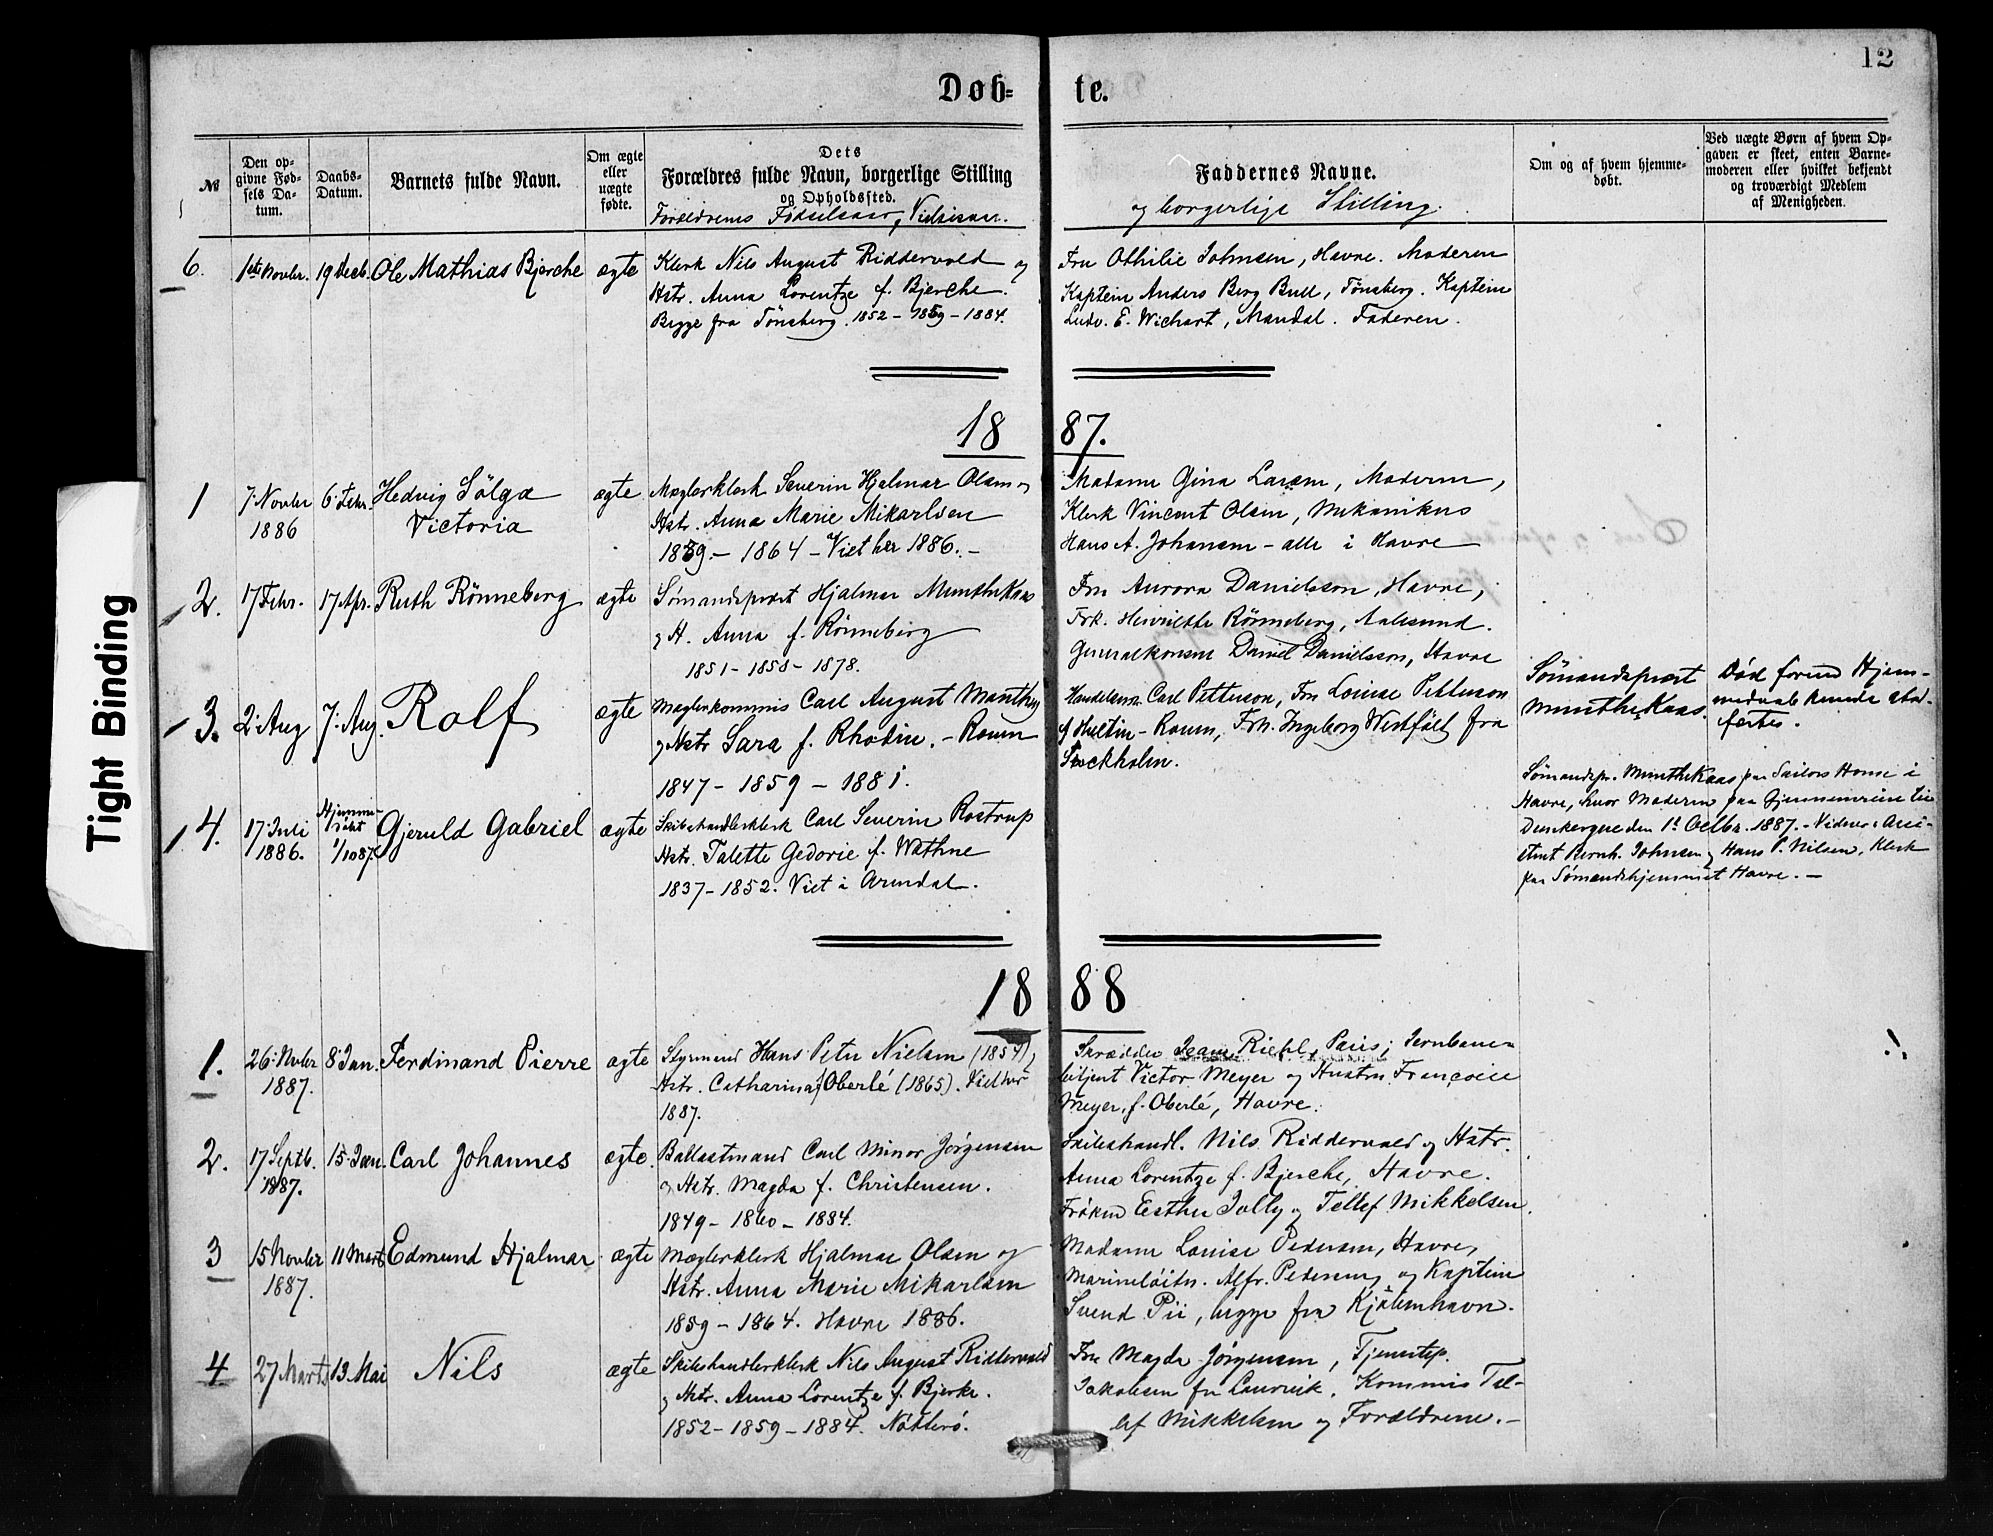 12
Døb-
te.
№
Den op-
givne Fød-
sels Da-
tum.
Daabs-
Datum.
Barnets fulde Navn.
Om ægte
eller
uægte
fødte.
Dets
Forældres fulde Navn, borgerlige Stilling
og Opholdssted.
Forældrenes Fødselsaar, Vielsesaar.
Faddernes Navne.
og borgerlige Stilling.
Om og af hvem hjemme-
døbt.
Ved uægte Børn af hvem Op-
gaven er skeet, enten Barne-
moderen eller hvilket bekjendt
og troværdigt Medlem
af Menigheden.
6.
1ste Novbr.
19 Decb.
Ole Mathias Bjerche
ægte
Klerk Nils August Riddervold og
Hstr. Anna Lorentze f. Bjerche.
Begge fra Tönsberg. 1852 - 1859 - 1884.
Fru Othilie Johnsen, Havre. Moderen
Kaptein Anders Berg Bull, Tönsberg. Kaptein
Ludv. E. Wichart, Mandal. Faderen.
18 87.
1
7 Novbr
1886
6 Febr.
Hedvig Sölga
Victoria
ægte
Mæglerklerk Severin Hjalmar Olsen og
Hstr. Anna Marie Mikarlsen
1859 - 1864 - Viet her 1886. -
Madame Gina Larsen, Moderen,
Klerk Vincent Olsen, Mekanikus
Hans A. Johansen - alle i Havre
2.
17 Febr.
17 Apr.
Ruth Rönneberg
ægte
Sømandsprest Hjalmar Munthe Kaas
og H. Anna f. Rönneberg
1851 - 1858 - 1878.
Fru Aurora Danielsson, Havre,
Frk. Henriette Rönneberg, Aalesund.
Generalkonsul Daniel Danielsson, Havre
3.
2 Aug
7 Aug.
Rolf
ægte
Mæglerkommis Carl August Manthey
og Hstr Sara f. Rhodin. - Rouen
1847 - 1859 - 1881.
Handelsm. Carl Petterson, Fru Louise Petterson
f Hultin - Rouen, Frk. Ingeborg Westfält fra
Stockholm.
Sømandsprest
Munthe Kaas.
Død forend Hjem-
medaab kunde stad-
fæstes.
4.
17 Juli
1886.
Hjemme
døbt
1/10 87
Gjeruld Gabriel
ægte
Skibshandlerklerk Carl Severin Rostrup
Hstr. Talette Gedorie f. Wathne
1837 - 1852. Viet i Arendal.
Sømandspr. Munthe Kaas paa Sailors Home i
Havre, hvor Moderen paa Gjennemreise til
Dunkerque den 1. Octbr. 1887. - Vidner: Assi-
stent Bernh. Johnsen og Hans P. Nilsen, Klerk
paa Sømandshjemmet Havre. -
18 88
1.
26 Novbr
1887.
8 Jan.
Ferdinand Pierre
ægte
Styrmand Hans Peter Nielsen (1857) og
Hstr. Catharina f Oberlé (1865). Viet her
1887.
Skrædder Jean Riehl, Paris; Jernbane-
betjent Victor Meyer og Hustru Francoise
Meyer, f. Oberlé, Havre.
2.
17 Septb.
1887.
15 Jan.
Carl Johannes
ægte.
Ballastmand Carl Minor Jørgensen
og Hstr. Magda f. Christensen.
1849 - 1860 - 1884.
Skibshandl. Nils Riddervold og Hstr.
Anna Lorentze f. Bjerche, Havre.
Frøken Esther Jolly og Tellef Mikkelsen.
3
15 Novbr
1887.
11 Marts
Edmund Hjalmar
ægte
Mæglerklerk Hjalmar Olsen og
Hstr. Anna Marie Mikarlsen
1859 - 1864. Havre 1886.
Madame Louise Pedersen, Havre,
Marineløitn. Alfr. Pedersen og Kaptein
Svend Pii, begge fra Kjøbenhavn.
4
27 Marts
13 Mai
Nils
ægte
Skibshandlerklerk Nils August Riddervold
og Hstr. Anna Lorentze f. Bjerke.
1852 - 1859 - 1884. Nötterö.
Fru Magda Jörgensen, Tjenestep.
Jakobsen fra Laurvik. Kommis Tel-
lef Mikkelsen og Forældrene. -
Tight Binding